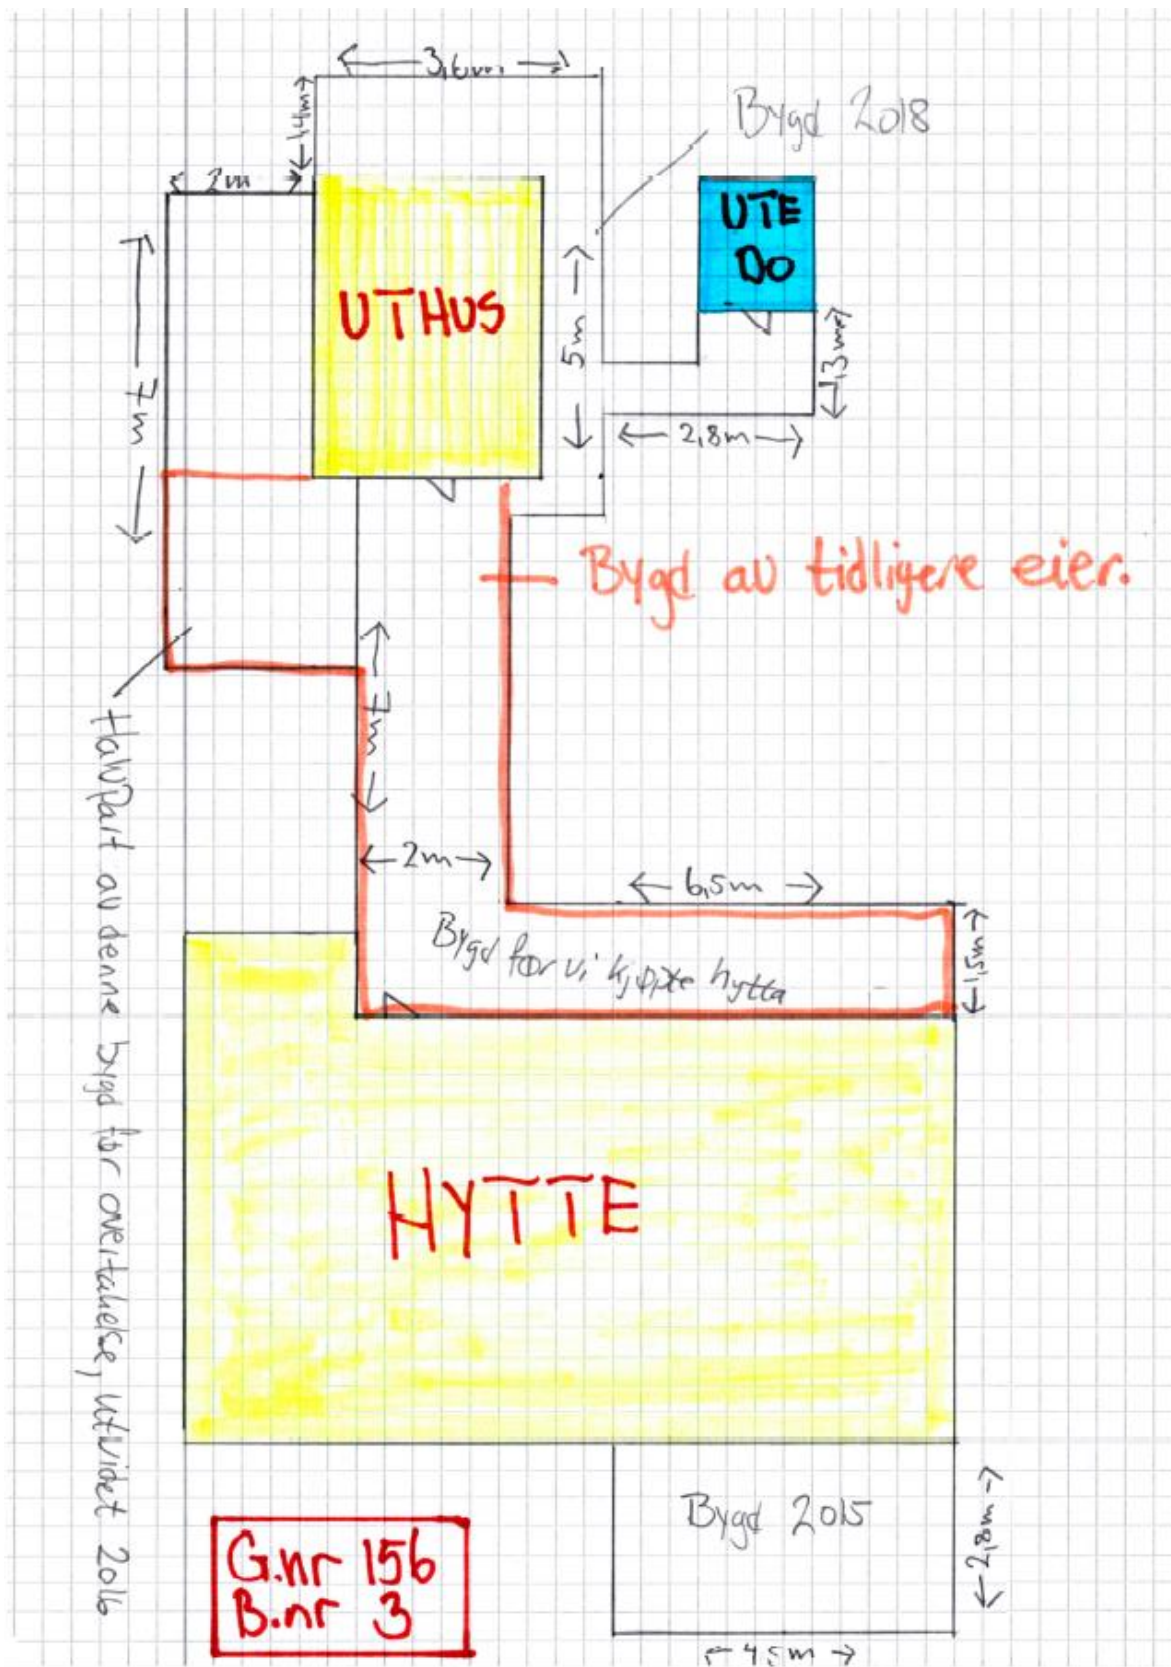 3,6m
1,4m
Bygd 2018
2m
UTE
DO
UTHUS
5m
7m
1,3m
2,8m
Bygd av tidligere eier.
7m
2m
6,5m
Bygd før vi kjøpte hytta
1,5m
Halvpart av denne bygd før overtakelse, utvidet 2016
HYTTE
Bygd 2015
2,8m
G.nr 156
B.nr 3
4,5m